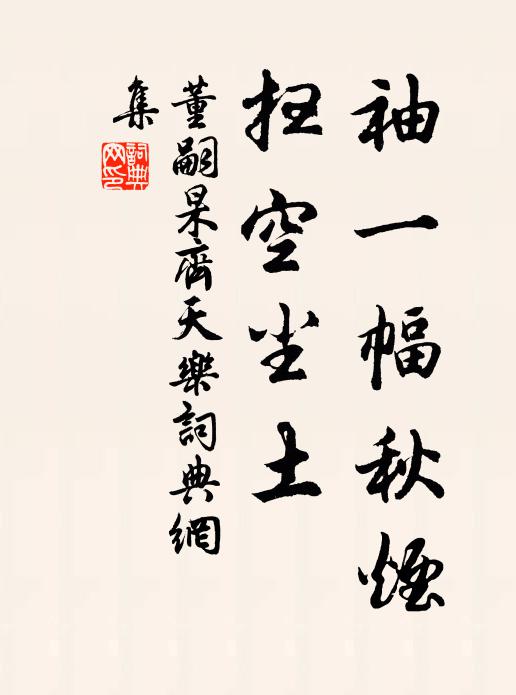 袖一幅秋煙
扫空尘土
董嗣杲齊天樂詞典網
集
詞典
网印